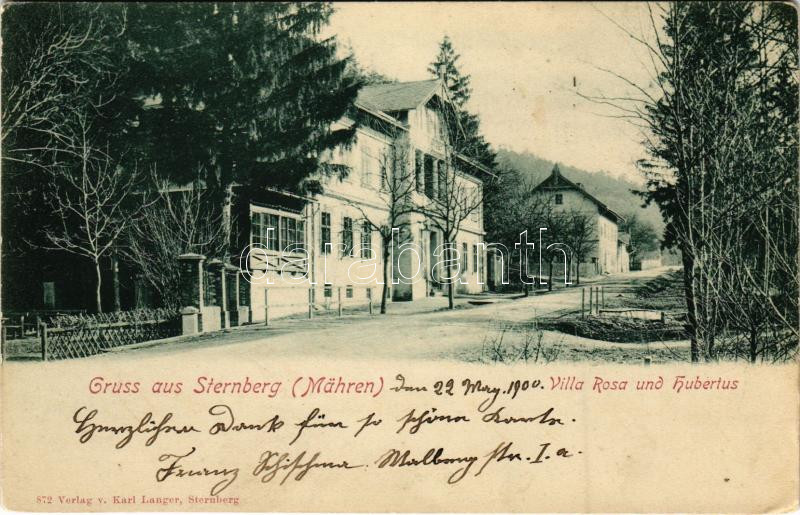 darabanth
Gruss aus Sternberg (Mähren) den 22 May. 1900. Villa Rosa und Hubertus
Herzlichen Dank für so schöne Karte.
Franz Schischma. Malberg str. I. a.
872 Verlag v. Karl Langer, Sternberg